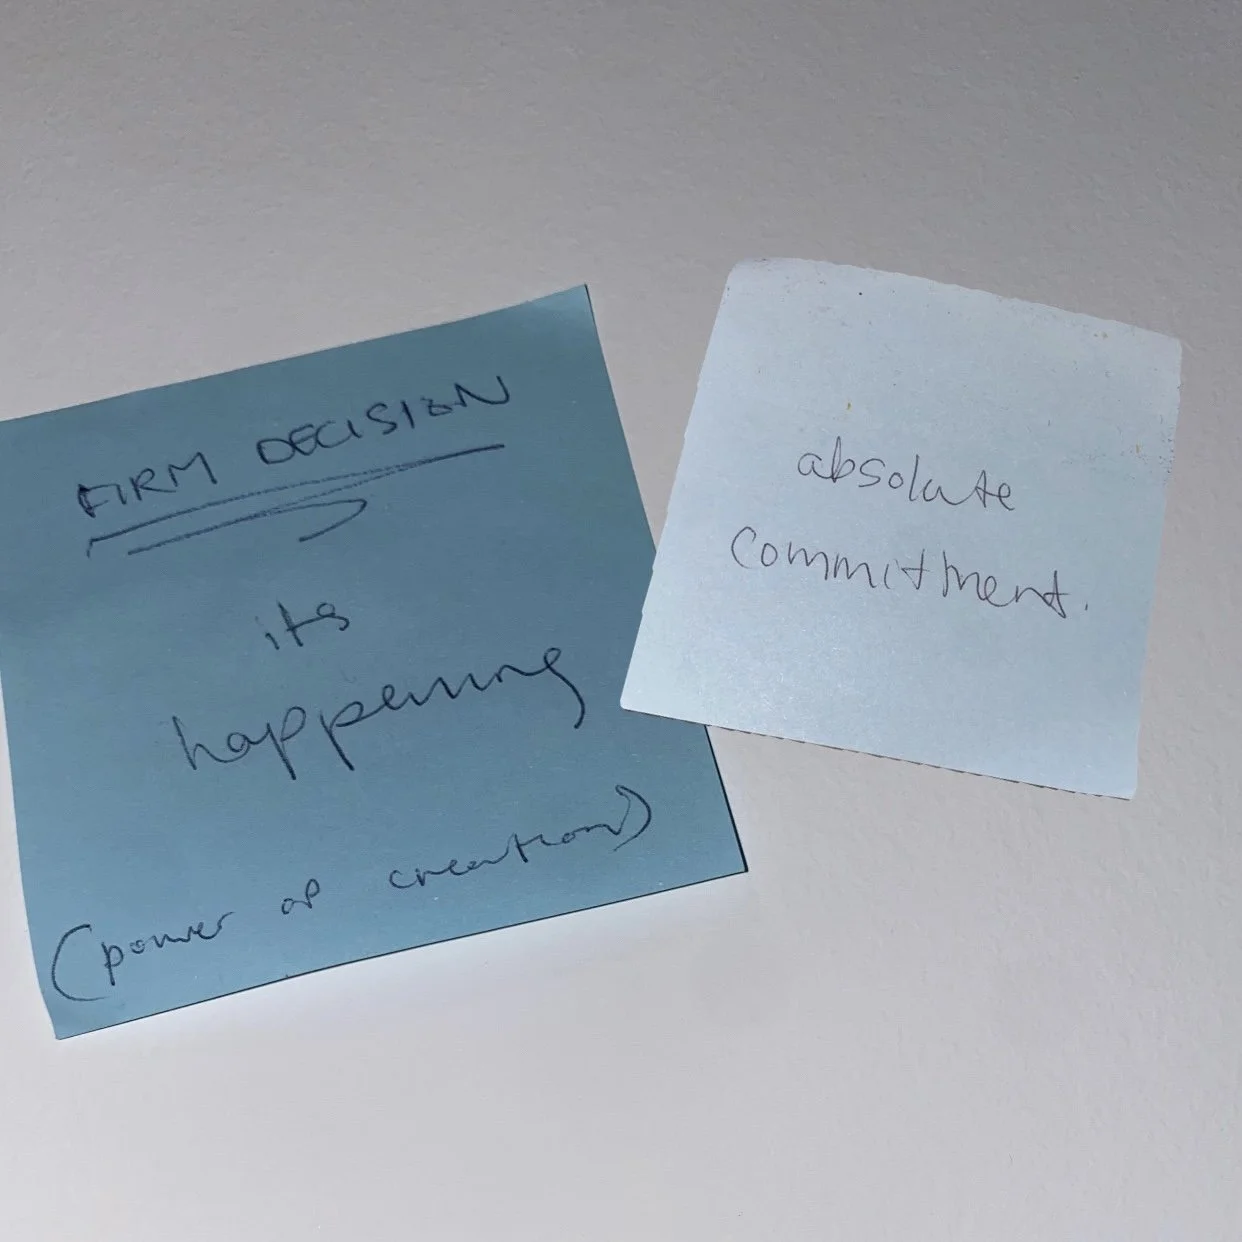 FIRM DECISION
its
happening
(power of creation)
absolute
commitment.